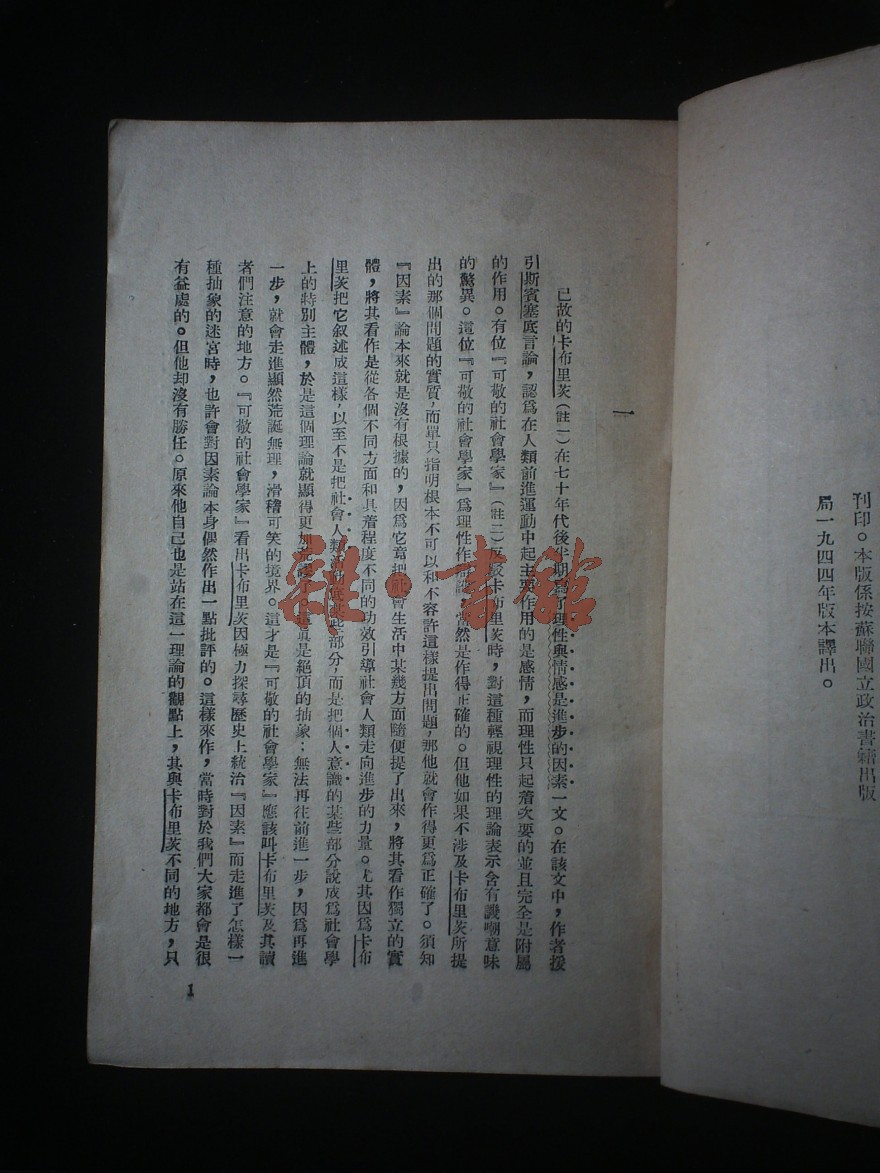 刊印。本版係按蘇聯國立政治書籍出版
局一九四四年版本譯出。
一
已故的卡布里茨(註一)在七十年代後半期寫了理性與情感是進步的因素一文。在該文中,作者援
引斯賓塞底言論,認爲在人類前進運動中起主要作用的是感情,而理性只起着次要的並且完全是附屬
的作用。有位『可敬的社會學家』(註二)反駁卡布里茨時,對這種輕視理性的理論表示含有譏嘲意味
的驚異。這位『可敬的社會學家』爲理性作辯護,當然是作得正確的。但他如果不涉及卡布里茨所提
出的那個問題的實質,而單只指明根本不可以和不容許這樣提出問題,那他就會作得更爲正確了。須知
『因素』論本來就是沒有根據的,因爲它竟把社會生活中某幾方面隨便提了出來,將其看作獨立的實
體,將其看作是從各個不同方面和具着程度不同的功效引導社會人類走向進步的力量。尤其因爲卡布
里茨把它叙述成這樣,以至不是把社會人類活動底某些部分,而是把個人意識的某些部分說成爲社會學
上的特別主體,於是這個理論就顯得更加荒謬了。這眞是絕頂的抽象;無法再往前進一步,因爲再進
一步,就會走進顯然荒誕無理,滑稽可笑的境界。這才是『可敬的社會學家』應該叫卡布里茨及其讀
者們注意的地方。『可敬的社會學家』看出卡布里茨因極力探尋歷史上統治『因素』而走進了怎樣一
種抽象的迷宮時,也許會對因素論本身偶然作出一點批評的。這樣來作,當時對於我們大家都會是很
有益處的。但他却沒有勝任。原來他自己也是站在這一理論的觀點上,其與卡布里茨不同的地方,只
1
雜·書館